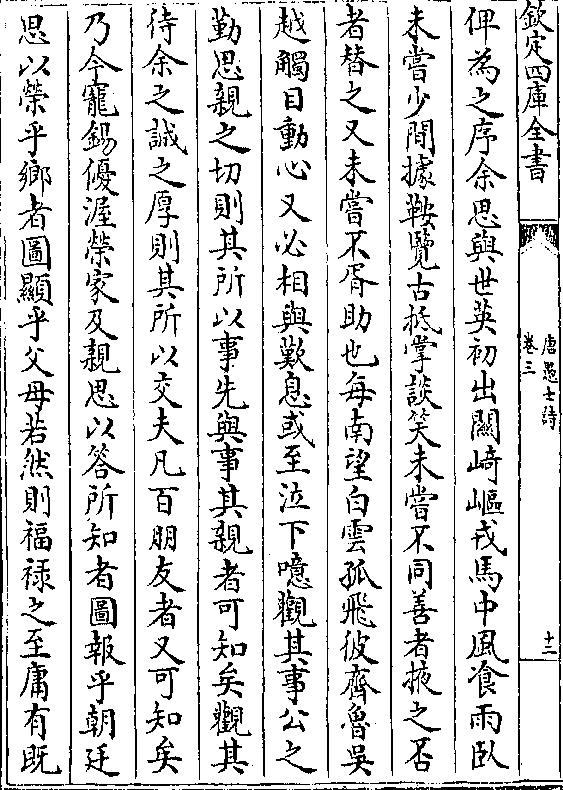 欽定四庫全書
唐愚士詩
卷三
十二
俾為之序余思與世英初出關崎嶇戎馬中風飡雨臥
未嘗少間據鞍覽古抵掌談笑未嘗不同善者掖之否
者替之又未嘗不胥助也每南望白雲孤飛彼齊魯吳
越觸目動心又必相與歎息或至泣下噫觀其事公之
勤思親之切則其所以事先與事其親者可知矣觀其
待余之誠之厚則其所以交夫凡百朋友者又可知矣
乃今寵錫優渥榮家及親思以答所知者圖報乎朝廷
思以榮乎鄉者圖顯乎父母若然則福祿之至庸有既